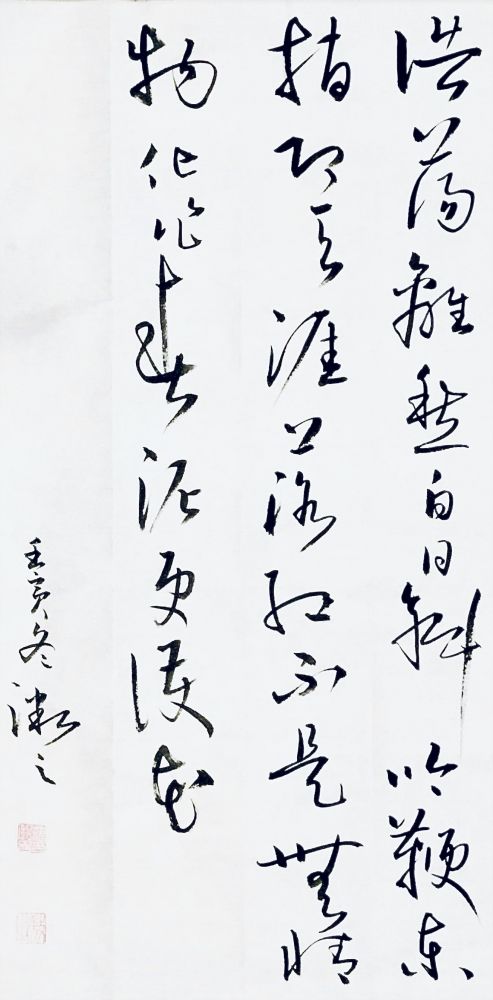 浩蕩離愁白日斜吟鞭東
指即天涯落紅不是無情
物化作春泥更護花
壬寅冬